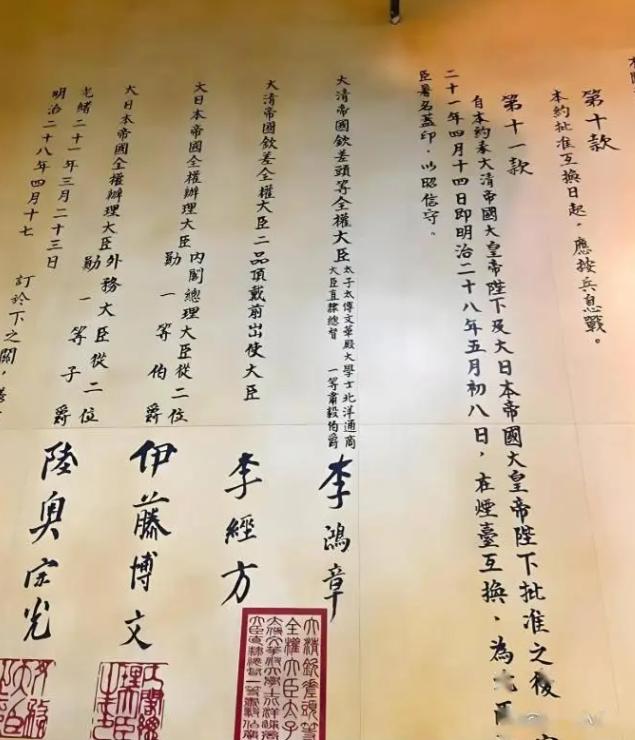 第十款
本約批准互換日起，應按兵息戰。
第十一款
自本約奉大清帝國大皇帝陛下及大日本帝國大皇帝陛下批准之後
二十一年四月十四日即明治二十八年五月初八日，在煙臺互換，為
臣署名蓋印，以昭信守。
大清帝國欽差頭等全權大臣
太子太傅文華殿大學士北洋通商
大臣直隸總督 一等肅毅伯爵
李鴻章
大清帝國欽差全權大臣二品頂戴前出使大臣
李經方
大日本帝國全權辦理大臣
內閣總理大臣從二位
勛一等伯爵
伊藤博文
大日本帝國全權辦理大臣
外務大臣從二位
勛一等子爵
陸奥宗光
光緒二十一年三月二十三日
明治二十八年四月十七
訂於下之關，